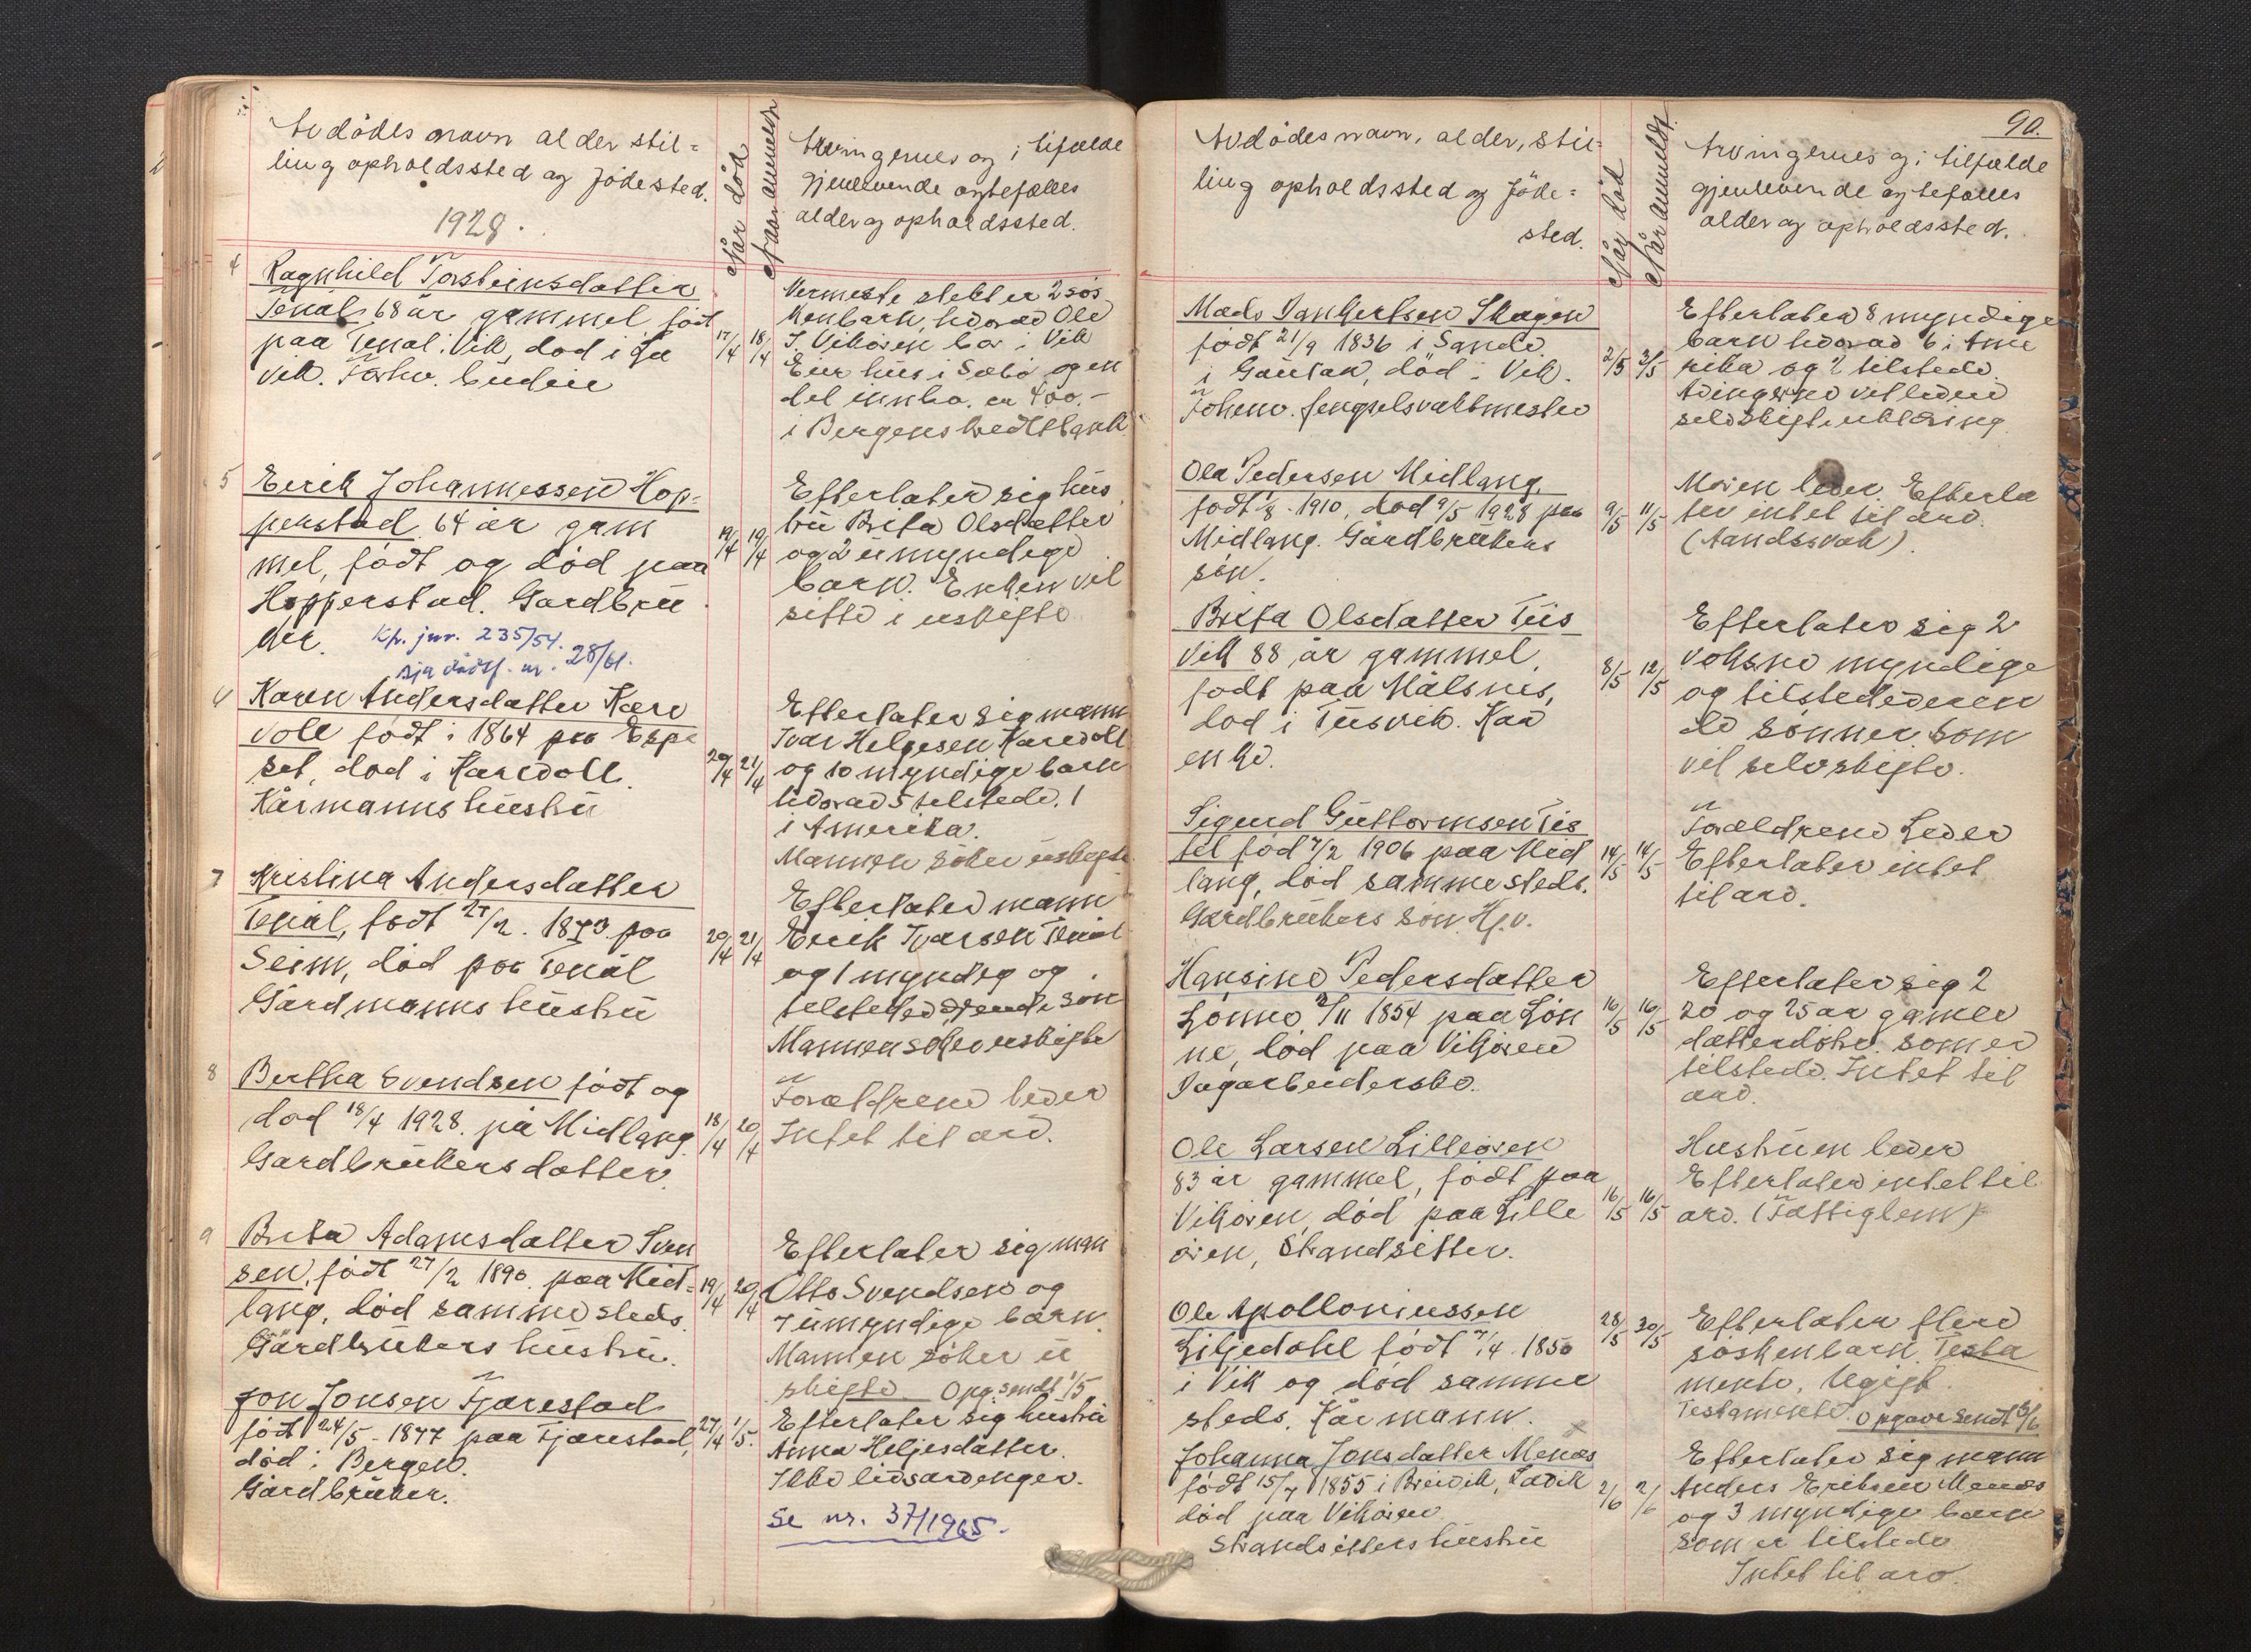 Avdödes navn alder stil=
ling opholdssted og födested.
1928.
Når död
Naar anmeldt
Arvingernes og i tilfælde
gjenlevende egtefælles
alder og opholdssted.
4 Ragnhild Torsteinsdatter
Tenål 68 år gammel födt
paa Tenål i Vik, död i La
vik. Forhv. budeie
17/4 18/4
Nermeste slekt er 2 sös
kenbarn, hvorav Ole
J. Vikören bor i Vik
Eier hus i Sæbö og en
del innbo. en 400.-
i Bergens kreditbank
5 Eirik Johannessen Hop=
perstad 64 år gam
mel, födt og död paa
Hopperstad. Gardbru
ker. kp. jnr. 235/54.
sja dödsf. nr. 28/61.
19/4 19/4
Efterlater sig hus
tru Brita Olsdatter
og 2 umyndige
barn. Enken vil
sitte i uskifte
Karen Andersdatter Kare
voll födt i 1864 paa Espe
set, död i Karevoll.
Kårmanns hustru
20/4 21/4
Efterlater sig mann
Ivar Helgesen Karevoll
og 10 myndige barn
hvorav 5 tilstede. 1
i Amerika.
Mannen söker uskifte.
7 Kristina Andersdatter
Tenål, födt 27/2. 1873 paa
Seim, död paa Tenål
Gårdmanns hustru
20/4 21/4
Efterlater mann
Eirik Ivarsen Tenål
og 1 myndig og
tilstedeværende sön
Mannen söker uskifte
8 Bertha Svendsen födt og
död 18/4 1928. på Midlang.
Gardbrukers datter.
18/4 20/4
Forældrene lever
Intet til arv.
9 Brita Adamsdatter Sven
sen, födt 27/2 1890. paa Mid=
lang, död samme steds.
Gårdbrukers hustru.
19/4 20/4
Efterlater sig man
Otto Svendsen og
7 umyndige barn.
Mannen söker u
skifte. Opg. sendt 1/5
Jon Jonsen Tjarestad
födt 24/5 - 1877 paa Tjarestad,
död i Bergen.
Gårdbruker.
27/4 1/5.
Efterlater sig hustru
Anna Heljesdatter.
Ikke livsarvenger.
Se nr. 37/1965.
90.
Avdödes navn, alder, stil=
ling opholdssted og föde=
sted.
Når död
Når anmeldt.
Arvingernes og i tilfælde
gjenlevende egtefælles
alder og opholdssted.
Mads Dankertsen Skagen
födt 21/9 1836 i Sande
i Gaular, död i Vik.
Fohenv. fengselsvaktmester
2/5 3/5
Efterlater 8 myndige
barn hvorav 6 i Ame
rika og 2 tilstede.
Arvingerne vil levere
selvskifteerklæring.
Ola Pedersen Midlang
födt 1/8 1910, död 9/5 1928 paa
Midlang. Gårdbrukers
sön.
9/5 11/5
Moren lever. Efterla
ter intet til arv.
(Aandssvak).
Brita Olsdatter Tüs
vik 88 år gammel,
födt paa Målsnes,
död i Tüsvik. Kår
enke.
8/5 12/5
Efterlater sig 2
voksne myndige
og tilstedeværen
de sönner som
vil selvskifte.
Sigurd Guttormsen Tis
til född 7/2 1906 paa Mid
lang, död samme steds.
Gardbrukers sön. Hj.v.
14/5 14/5
Forældrene lever
Efterlater intet
til arv.
Hansine Pedersdatter
Lönne 2/11 1854 paa Lön
ne, död paa Vikören
Dagarbeiderske.
16/5 16/5
Efterlater sig 2
20 og 25 aar gamle
datterdötre som er
tilstede. Intet til
arv.
Ole Larsen Lilleören
83 år gammel, födt paa
Vikören, död paa Lille
ören, Strandsitter.
16/5 16/5
Hustruen lever
Efterlater intet til
arv. (Fattiglem)
Ole Apolloniussen
Liljedahl födt 7/4. 1850
i Vik og död samme
steds. Kårmann.
28/5 30/5
Efterlater flere
söskenbarn. Testa
mente. Ugift
Testamente. Opgave sendt 5/6
Johanna Jonsdatter Menæs
födt 15/7 1855 i Breivik, Lavik
död paa Vikören.
Strandsitters hustru
2/6 2/6
Efterlater sig mann
Anders Eriksen Menæs
og 3 myndige barn
som er tilstede
Intet til arv.